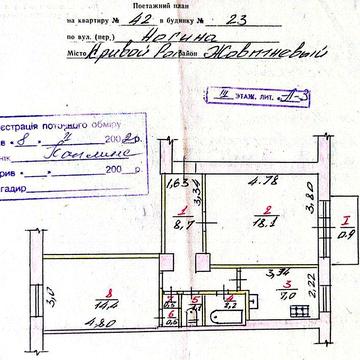 Поэтажний план
на квартиру № 42 в будинку № 23
по вул. (пер.) Ногина
Місто Кривой Рог Район Жовтневый
IV ЭТАЖ. ЛИТ. "А-3
єстрація поточного обміру
ів «8» 200 2р.
ик
рив «___» 200 р.
игадир
1,63
3,34
4.78
3,80
1
8,7
2
18.1
I
0.9
3,34
3
7,0
2,22
3,0
8
14,4
4,80
7
0,5
6
0,6
5
4
2,2